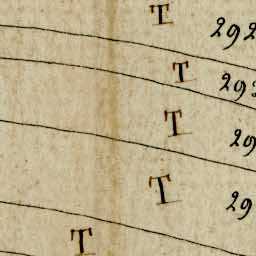 T 292
T 29
T 29
T 29
T